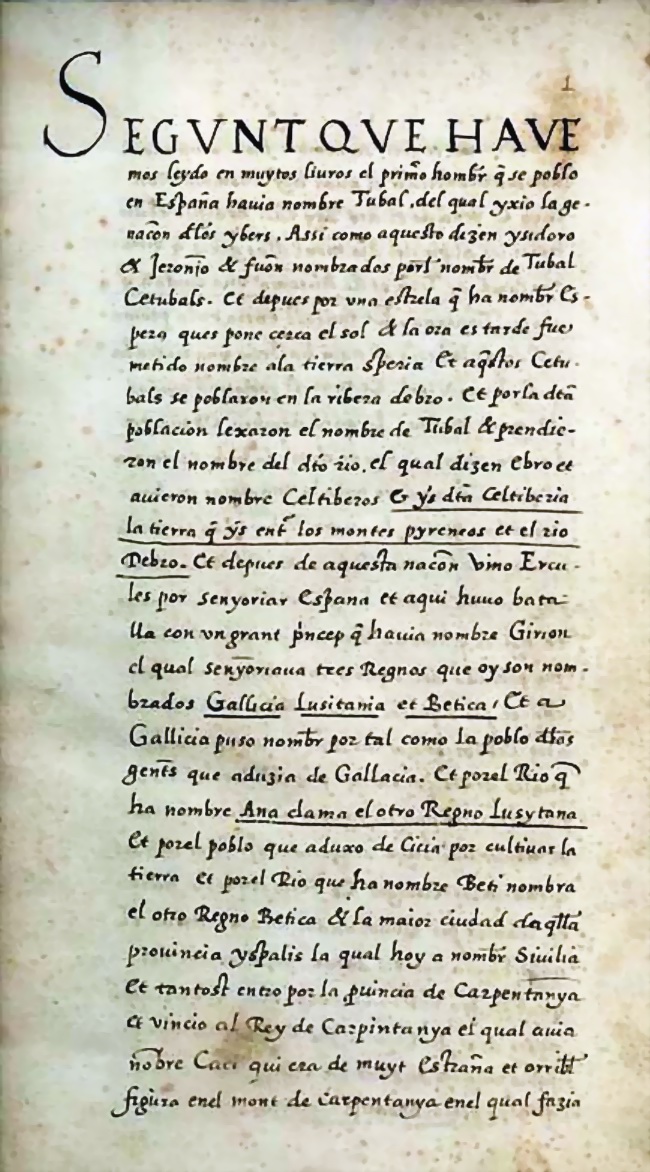 1
SEGVNT QVE HAVE
mos leydo en muytos liuros el prim̃o hombr̃ q̃ se poblo
en España hauia nombre Tubal, del qual yxio la ge-
nacõn dłos ybers. Assi como aquesto dizen ysidoro
& Jeronĩo & fuõn nombrados porl nombr̃ de Tubal
Cetubals. Et depues por vna estrela q̃ ha nombr̃ Es-
pera ques pone cerca el sol & la ora es tarde fue
metido nombre ala tierra speria Et aq̃stos Cetu-
bals se poblaron en la ribera debro. Et por la dtã
poblacion lexaron el nombre de Tubal & prendie-
ron el nombre del dtõ rio, el qual dizen Ebro et
auieron nombre Celtiberos Et ys dtã Celtiberia
la tierra q̃ ys ent̃ los montes pyreneos et el rio
Debro. Et depues de aquesta nacõn vino Ercu-
les por senyoriar Espana et aqui huuo bata
lla con vn grant p̃ncep q̃ hauia nombre Girion
el qual senyoriaua tres Regnos que oy son nom-
brados Gallicia Lusitania et Betica, Et a
Gallicia puso nombr̃ por tal como la poblo dłas
gent̃s que aduzia de Gallacia. Et por el Rio q̃
ha nombre Ana clama el otro Regno Lusytana
Et por el poblo que aduxo de Cicia por cultiuar la
tierra et por el Rio que ha nombre Beti nombra
el otro Regno Betica & la maior ciudad daq̃lla
prouincia yspalis la qual hoy a nombr̃ Siuilia
Et tantost entro por la puincia de Carpentanya
et vincio al Rey de Carpintanya el qual auia
nõbre Caci qui era de muyt estraña et orribl̃
figura enel mont de carpentanya enel qual fazia